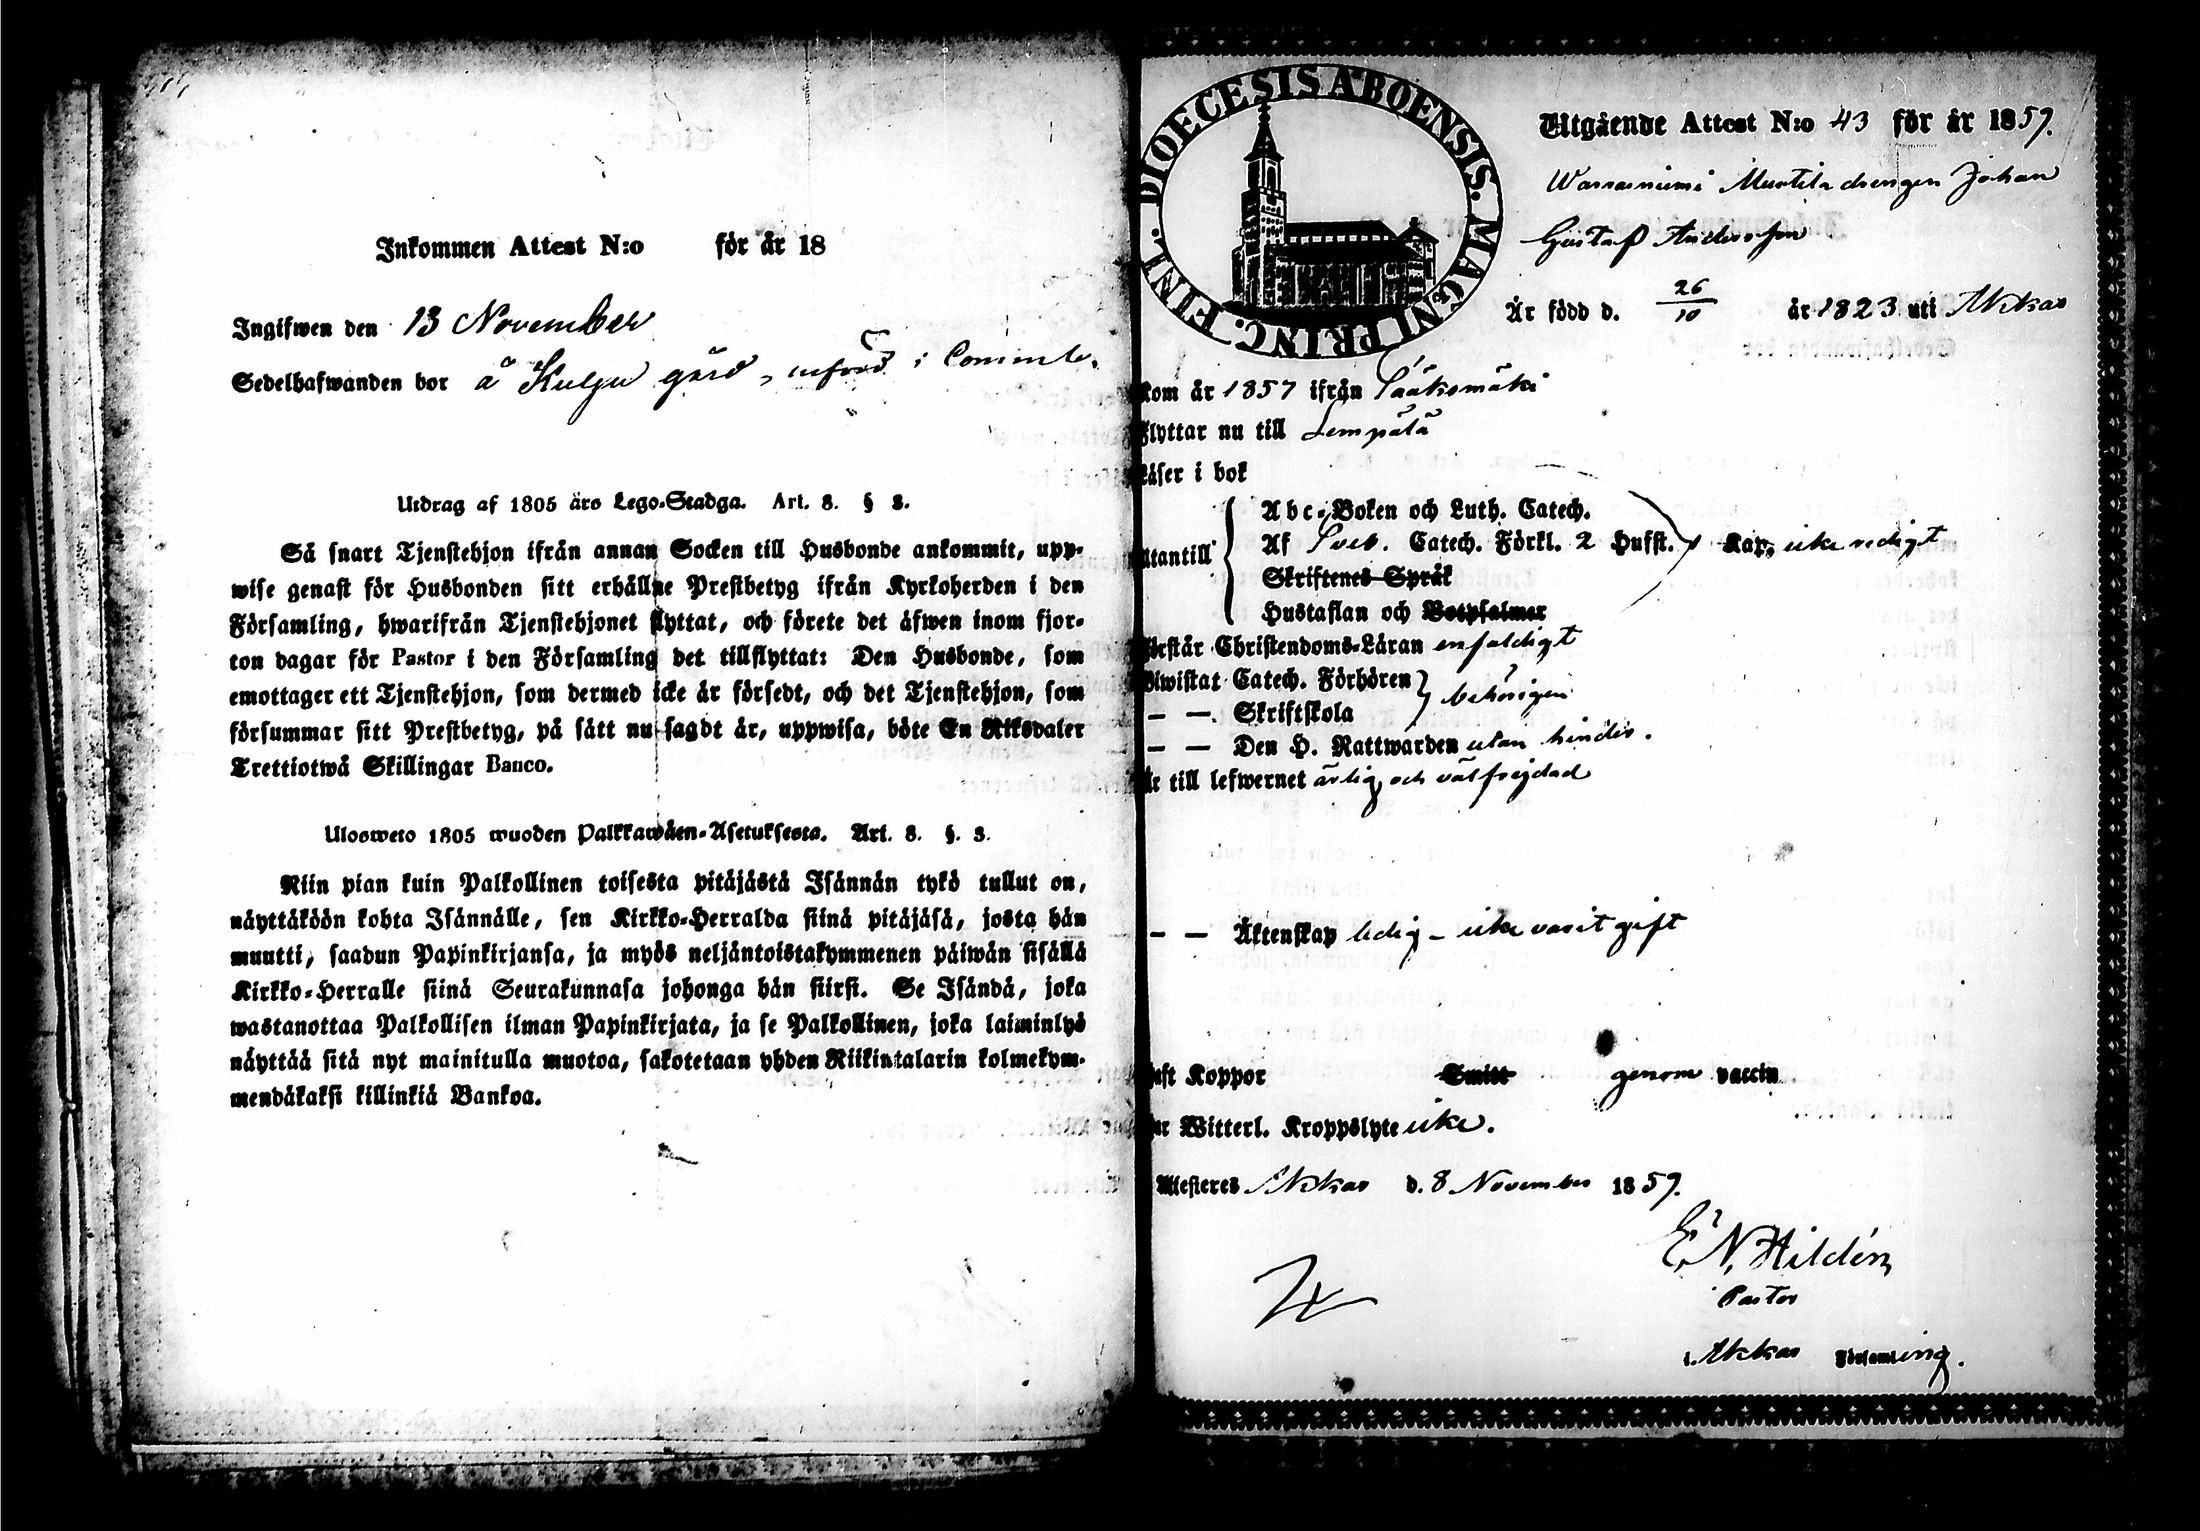 Inkommen Attest N:o för år 18
Ingifwen den 13 November
Sedelhafwanden bor å Kulju gård, införd i Comm.b.
Utdrag af 1805 års Lego-Stadga. Art. 8. § 3.
Så snart Tjenstehjon ifrån annan Socken till Husbonde ankommit, upp-
wise genast för Husbonden sitt erhållne Prestbetyg ifrån Kyrkoherden i den
Församling, hwarifrån Tjenstehjonet flyttat, och förete det äfwen inom fjor-
ton dagar för Pastor i den Församling det tillflyttat: Den Husbonde, som
emottager ett Tjenstehjon, som dermed icke är försedt, och det Tjenstehjon, som
försummar sitt Prestbetyg, på sätt nu sagdt är, uppwisa, böte En Riksdaler
Trettiotwå Skillingar Banco.
Ulosweto 1805 wuoden Palkkawäen-Asetuksesta. Art. 8. §. 3.
Niin pian kuin Palkollinen toisesta pitäjästä Isännän tykö tullut on,
näyttäköön kohta Isännälle, sen Kirkko-Herralda siinä pitäjäsä, josta hän
muutti, saadun Papinkirjansa, ja myös neljäntoistakymmenen päiwän sisällä
Kirkko-Herralle siinä Seurakunnasa johonga hän siirsi. Se Isändä, joka
wastanottaa Palkollisen ilman Papinkirjata, ja se Palkollinen, joka laiminlyö
näyttää sitä nyt mainitulla muotoa, sakotetaan yhden Riikintalarin kolmekym-
mendäkaksi killinkiä Bankoa.
DIOECESIS ABOENSIS. MAGNI PRINC. FINL.
Utgående Attest N:o 43 för år 1859.
Warrasniemi Mustila drengen Johan
Gustaf Andersson
Är född d. 26/10 år 1823 uti Akkas
Kom år 1857 ifrån Sääksmäki
Flyttar nu till Lempälä
Läser i bok
Utantill
Abc-Boken och Luth. Catech.
Af Sveb. Catech. Förkl. 2 Hufst. Kap. icke redigt
Skriftenes Språk
Hustaflan och Botpsalmer
Förstår Christendoms-Läran enfaldigt
Biwistat Catech. Förhören behörigen
— — Skriftskola
— — Den H. Nattwarden utan hinder.
Är till lefwernet ärlig och välfrejdad
— — Äktenskap ledig – icke varit gift
Haft Koppor Smitt genom vaccin
Har Witterl. Kroppslyte icke.
Attesteres Akkas d. 8 November 1859.
E. N. Hildén
Pastor
i Akkas Församling.